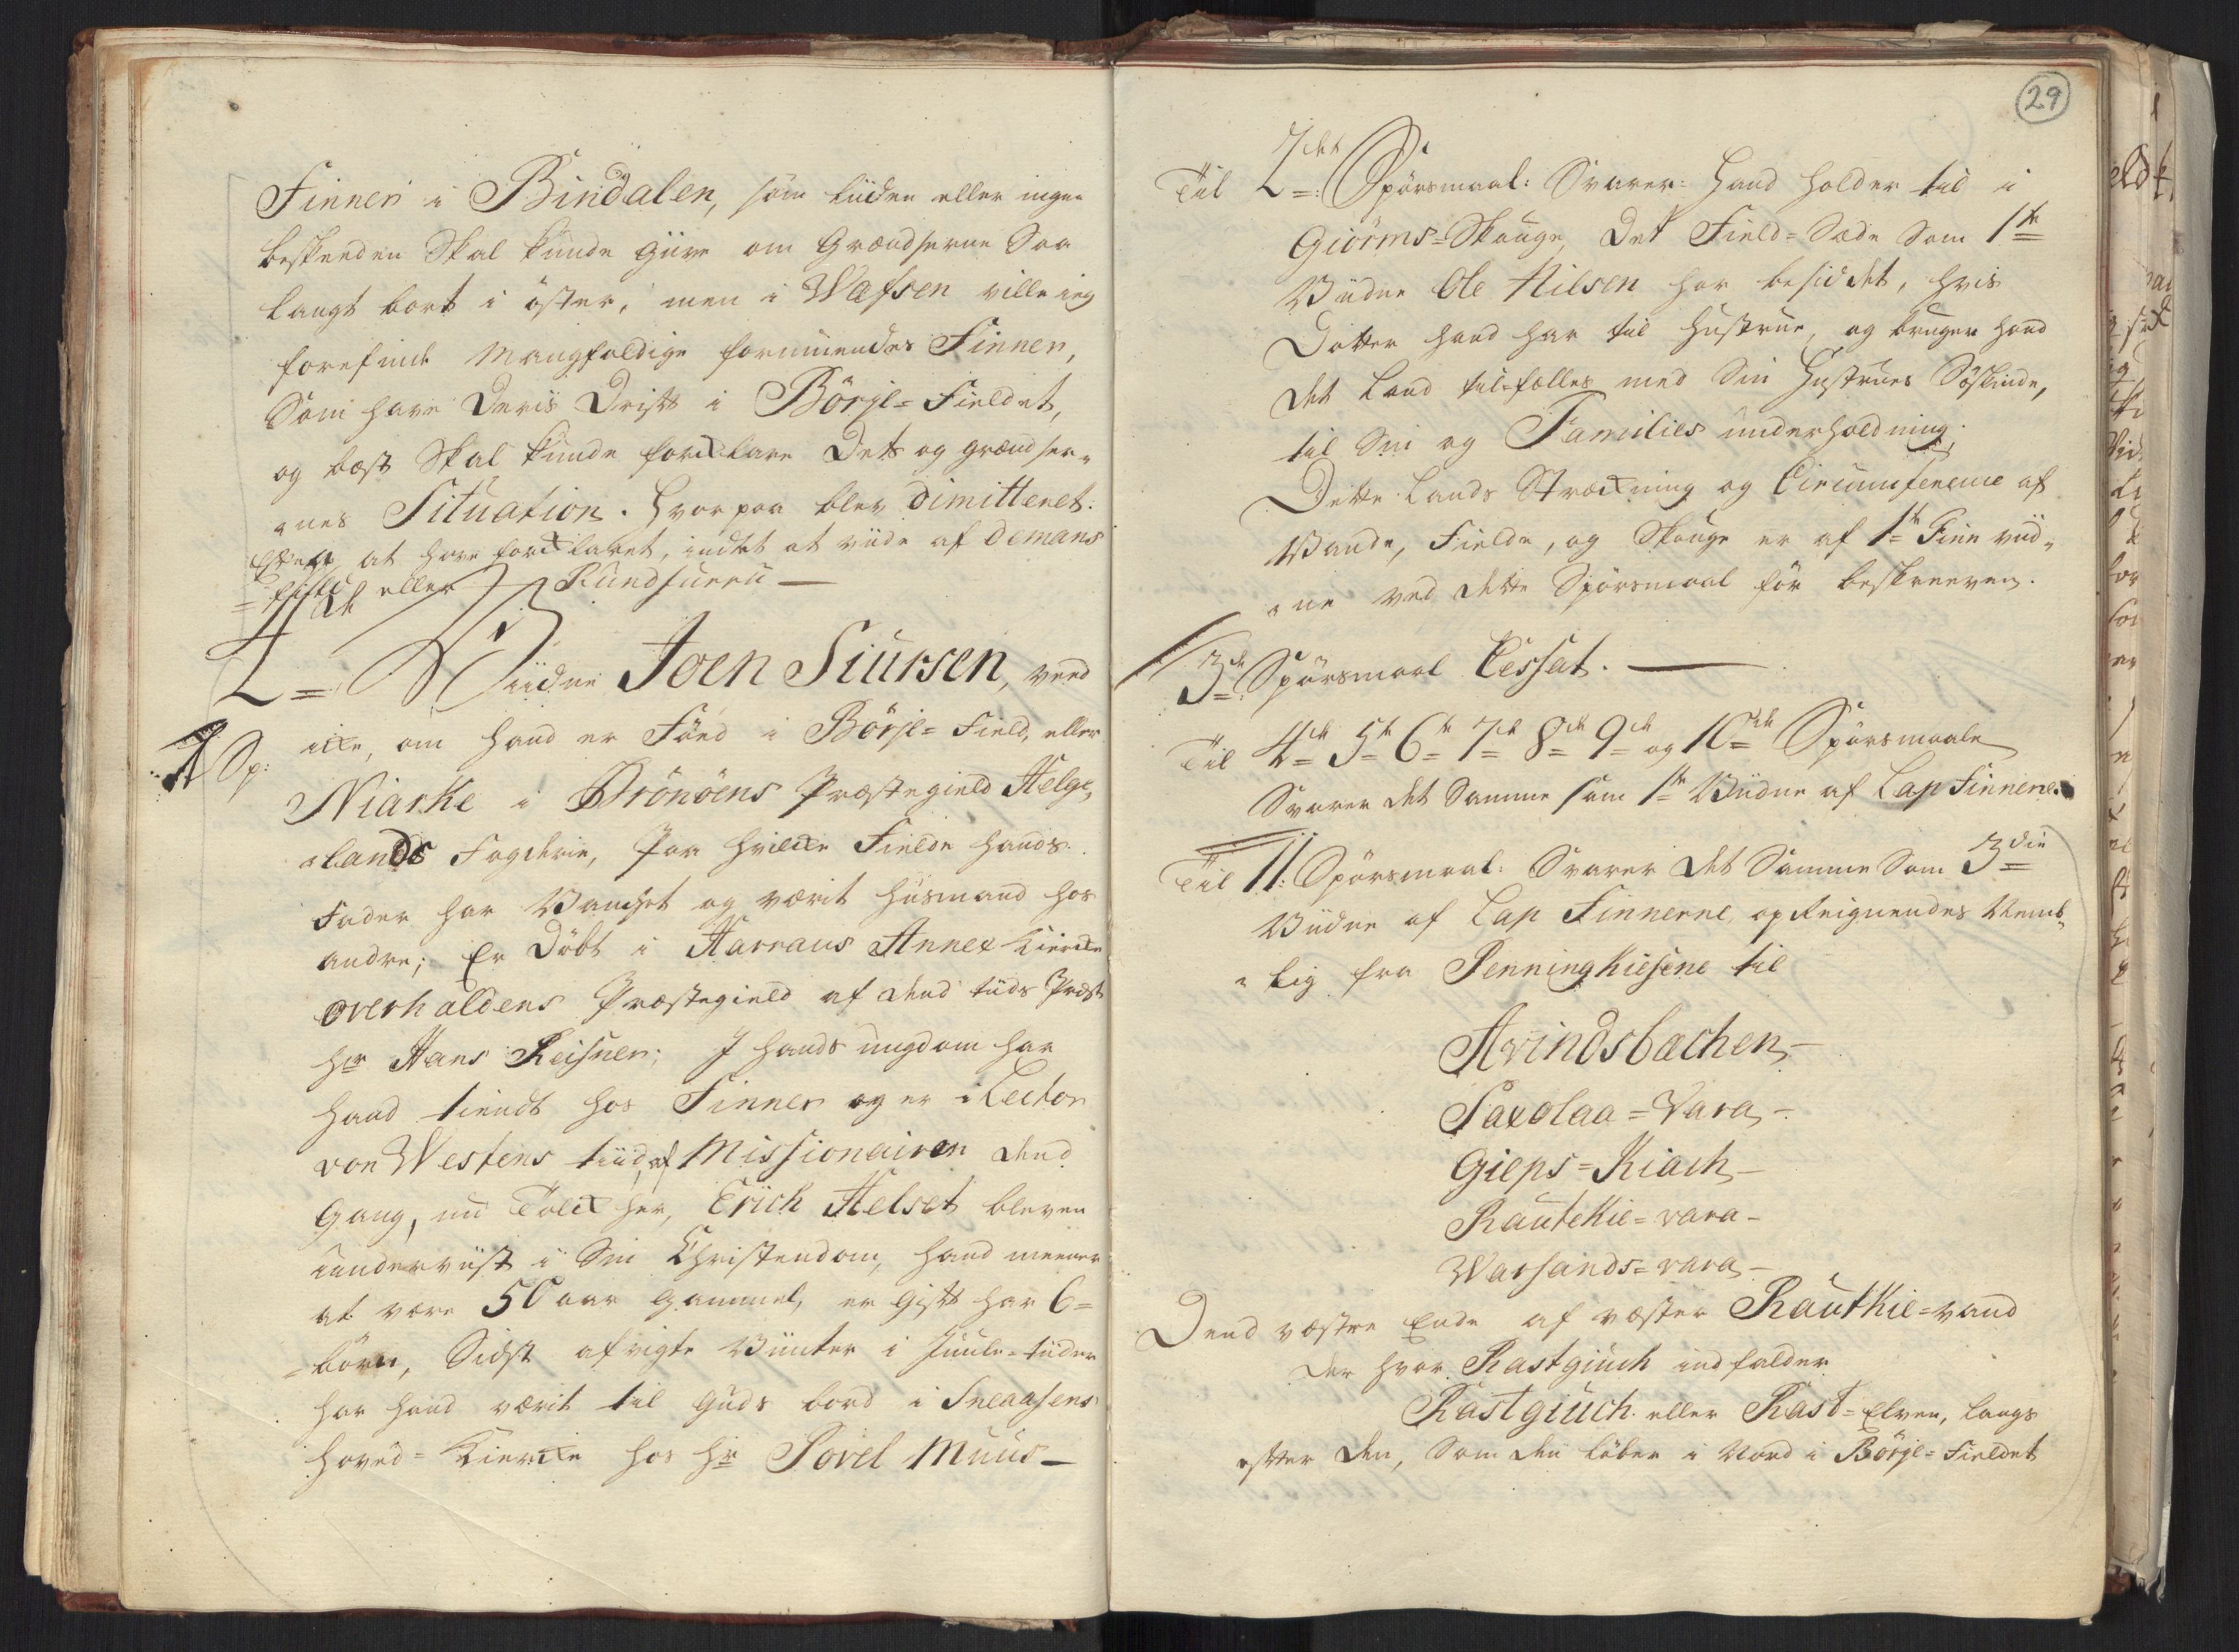 Finner i Bindalen, som liiden eller ingen
beskeeden Skal kunde giive om Grændserne Saa
langt bort i öster, men i Wefsen ville ieg
forefinde Mangfoldige formuendes Finner,
Som have Deris Drift i Börje=Fieldet,
og bæst Skal kunde forklare Det og grændser-
-nes Situation. Hvorpaa blev dimitteret.
efter at have forklaret, indtet at viide af Demans
=field eller Rundsueru —
4de Viidne Joen Siursen, veed
1 Sp: icke, om hand er Föed i Börje=Field, eller
Niarke i Brönöens Præstegield Helge-
-lands Fogderie, Paa hvilcke Fielde hands
Fader har Vancket og værit huusmand hos
andre; Er Döbt i Harrans Annex Kiercke
overhaldens Præstegield af dend tiids Præst
Hr Hans Reisner; I hands ungdom har
hand tient hos Finner og er i Lector
von Westens tiid, af Missionairen dend
Gang, nu Tolck her, Erich Helset bleven
underviist i Sin Christendom, hand meener
at være 50 aar gammel, er gift har 6=
=börn, Sidst afvigte Viinter i Juule=tiider
har hand værit til Guds bord i Sneaasens
hoved=Kiercke hos Hr Povel Muus —
29
Til 2det Spörsmaal: Svarer: Hand holder til i
Giörms=Skouge, Det Field=Sæde Som 1te
Viidne Ole Nilsen har besiddet, hvis
Datter hand har til Hustrue, og bruger hand
det Land tilfælles med Sin Hustrues Söskende,
til Sin og Families underholdning,
Dette Lands Strækning og Circumference af
Vande, Fielde, og Skouge er af 1te Finn viid-
-ne ved dette Spörsmaal för beskreeven.
3de Spörsmaal Cessat. —
Til 4de 5te 6te 7de 8de 9de og 10de Spörsmaale
Svarer det Samme som 1te Viidne af Lap Finnerne
Til 11: Spörsmaal: Svarer det Samme Som 3die
Viidne af Lap Finnerne, opReignendes Nemb-
-lig fra Penningkiesene til
Arindsbachen, —
Saxolaa=Vara, —
Gieps=Kiach, —
Rautekie=vara —
Warsands=vara, —
Dend vestre Ende af væster Rautkie=vand
der hvor Rastgiuch indfalder
Rastgiuch eller Rast=Elven, langs
efter den, Som den löber i Nord i Börje=Fieldet